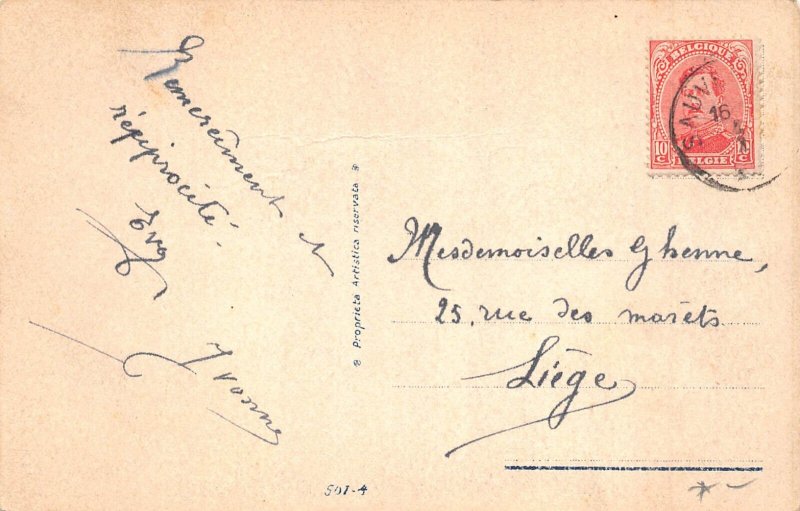 Remerciement &
réciprocité.
Eva
Yvonne
® Proprieta Artistica riservata ®
501-4
BELGIQUE
16
10 C
BELGIË
Mesdemoiselles Ghenne,
25, rue des marets
Liége